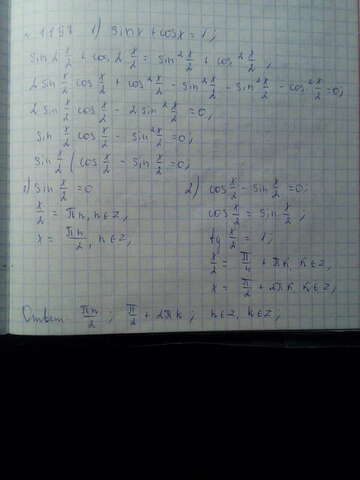 N 1197 1) sin x + cos x = 1;
sin 2 x/2 + cos 2 x/2 = sin² x/2 + cos² x/2;
2 sin x/2 cos x/2 + cos² x/2 - sin² x/2 - sin² x/2 - cos² x/2 = 0;
2 sin x/2 cos x/2 - 2 sin² x/2 = 0;
sin x/2 cos x/2 - sin² x/2 = 0;
sin x/2 (cos x/2 - sin x/2 = 0;
1) sin x/2 = 0
x/2 = πn, n∈Z,
x = πn/2, n∈Z,
2) cos x/2 - sin x/2 = 0;
cos x/2 = sin x/2;
tg x/2 = 1;
x/2 = π/4 + πk, k∈Z,
x = π/2 + 2πk, k∈Z,
Ответ πn/2; π/2 + 2πk; n∈Z, k∈Z,